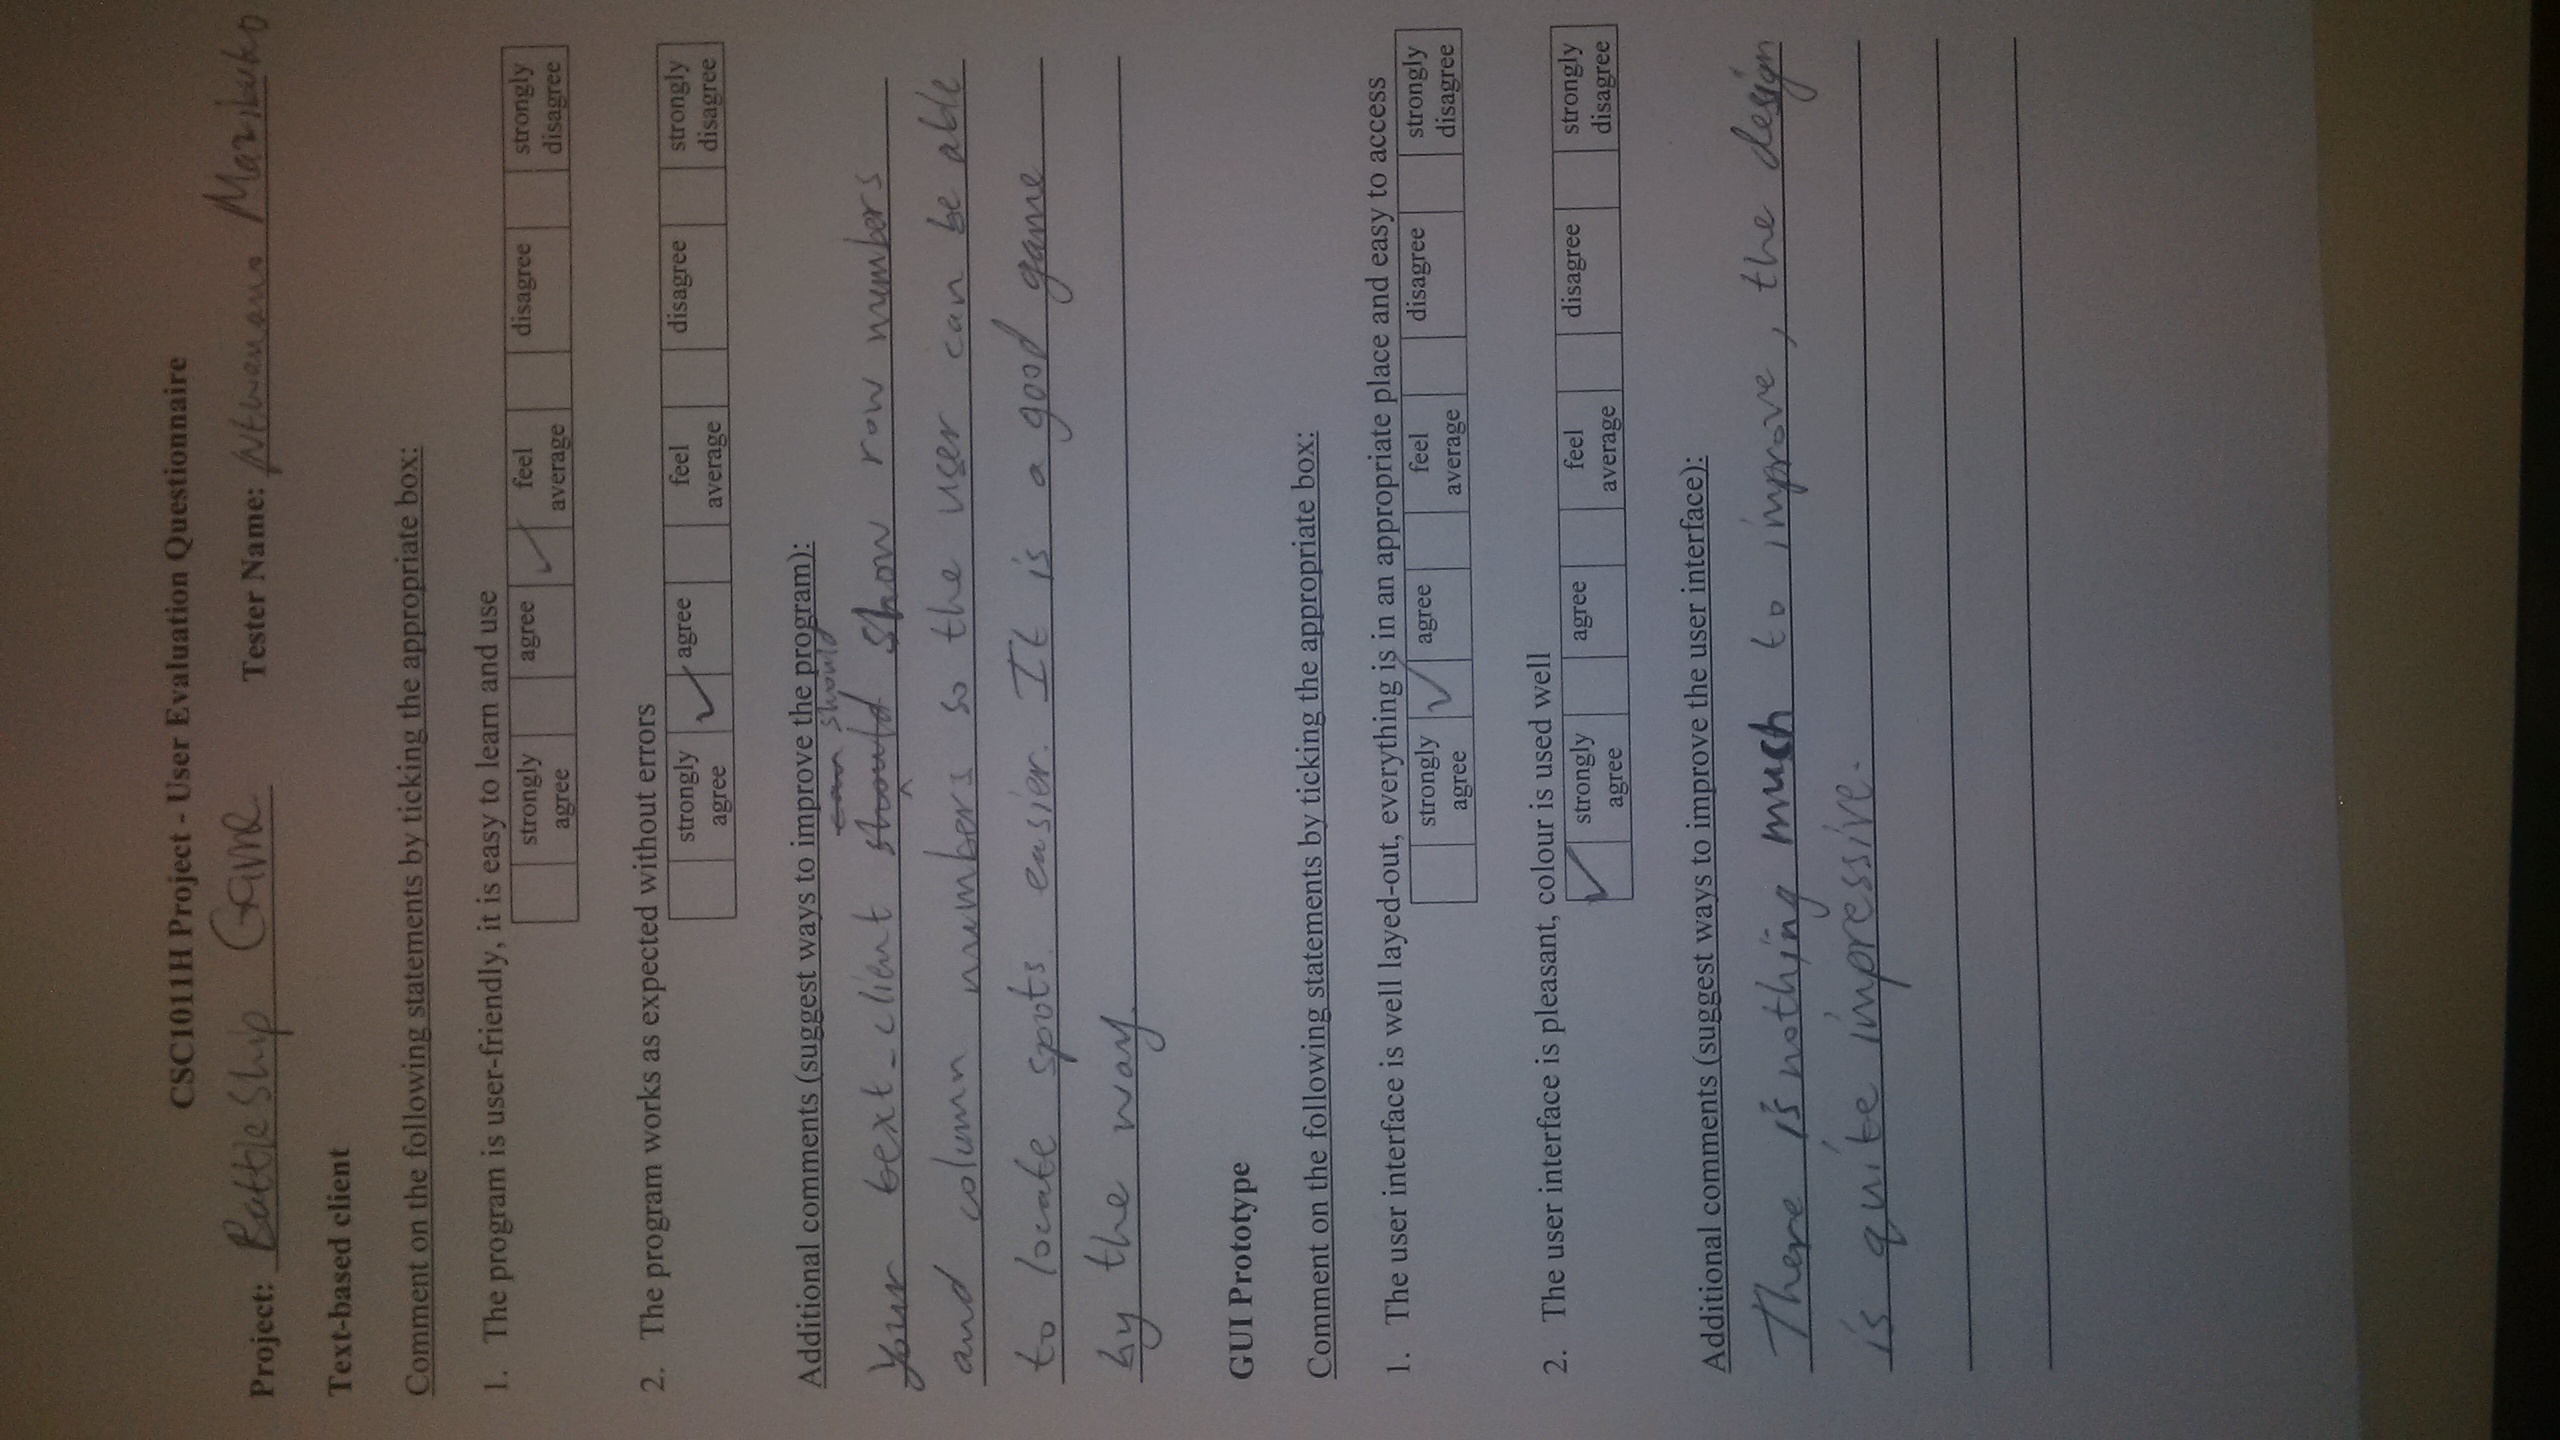 CSC1011H Project - User Evaluation Questionnaire
Project: BattleShip Game Tester Name: Ntwanano Mazibuko
Text-based client
Comment on the following statements by ticking the appropriate box:
1. The program is user-friendly, it is easy to learn and use
strongly agree agree ✓ feel average disagree strongly disagree
2. The program works as expected without errors
strongly agree ✓ agree feel average disagree strongly disagree
Additional comments (suggest ways to improve the program):
can should
Your text-client should show row numbers
and column numbers so the user can be able
to locate spots easier. It is a good game
by the way.
GUI Prototype
Comment on the following statements by ticking the appropriate box:
1. The user interface is well layed-out, everything is in an appropriate place and easy to access
strongly agree ✓ agree feel average disagree strongly disagree
2. The user interface is pleasant, colour is used well
✓ strongly agree agree feel average disagree strongly disagree
Additional comments (suggest ways to improve the user interface):
There is nothing much to improve, the design
is quite impressive.